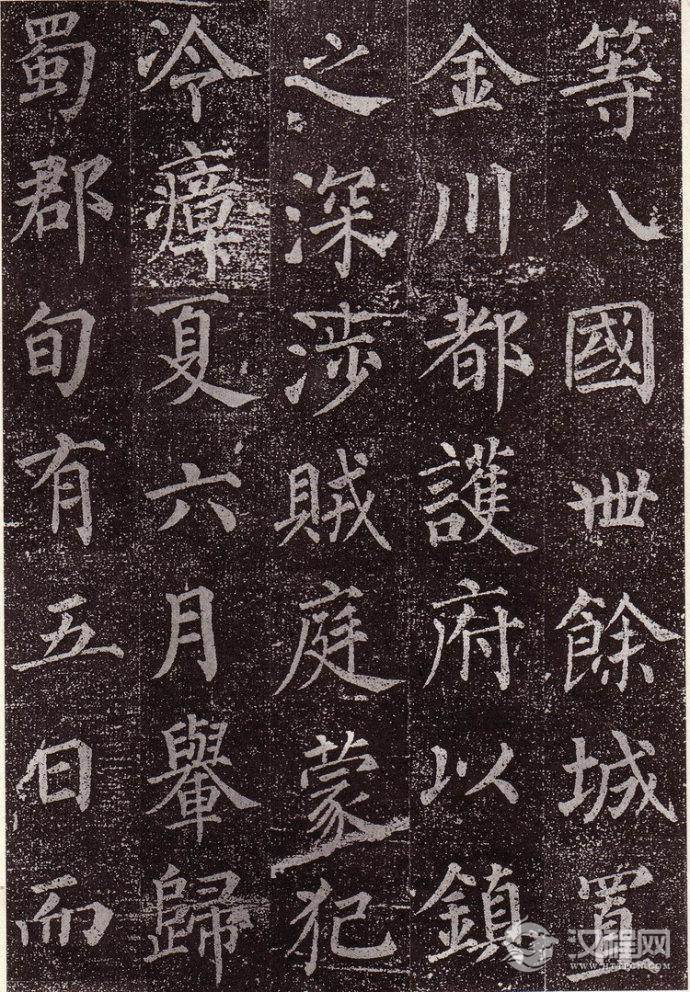 等八國卅餘城置
金川都護府以鎮
之深涉賊庭蒙犯
冷瘴夏六月轝歸
蜀郡旬有五日而
汉程网
WWW.HTTPCN.COM